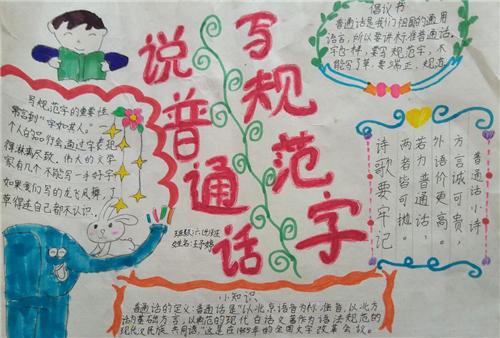 说普通话
写规范字
倡议书
普通话是我们祖国的通用
语言,所以要讲标准普通话。
字也一样,要写规范字,不
能写了草,要端正,规范
写规范字的重要性
常言到“字如其人”。
个人的品行会通过字表现
得淋漓尽致,伟大的文学
家有几个不能写一手好字
如果我们写的龙飞凤舞,了
草得连自己都不认识。
普通话小诗
方言诚可贵,
外语价更高。
若为普通话,
两者皆可抛。
诗歌要牢记
班级:六
姓名:王
小知识
普通话的定义:普通话是“以北京语音为标准音,以北方
话为基础方言,以典范的现代白话文著作为语法规范的
现代汉民族共同语,”这是在1955年的全国文字改革会议。